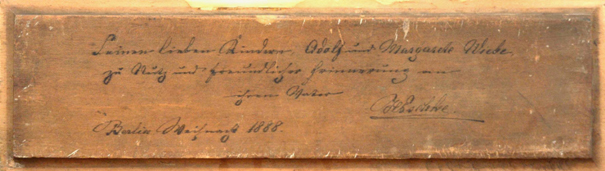 Seinen lieben Kindern, Adolf und Margarete
zu Nutz und freundlicher Erinnerung an
ihren Vater
Berlin Weihnacht 1888.